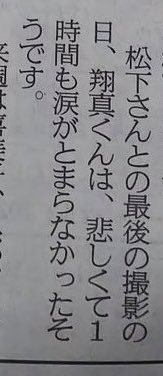 松下さんとの最後の撮影の
日、翔真くんは、悲しくて1
時間も涙がとまらなかったそ
うです。